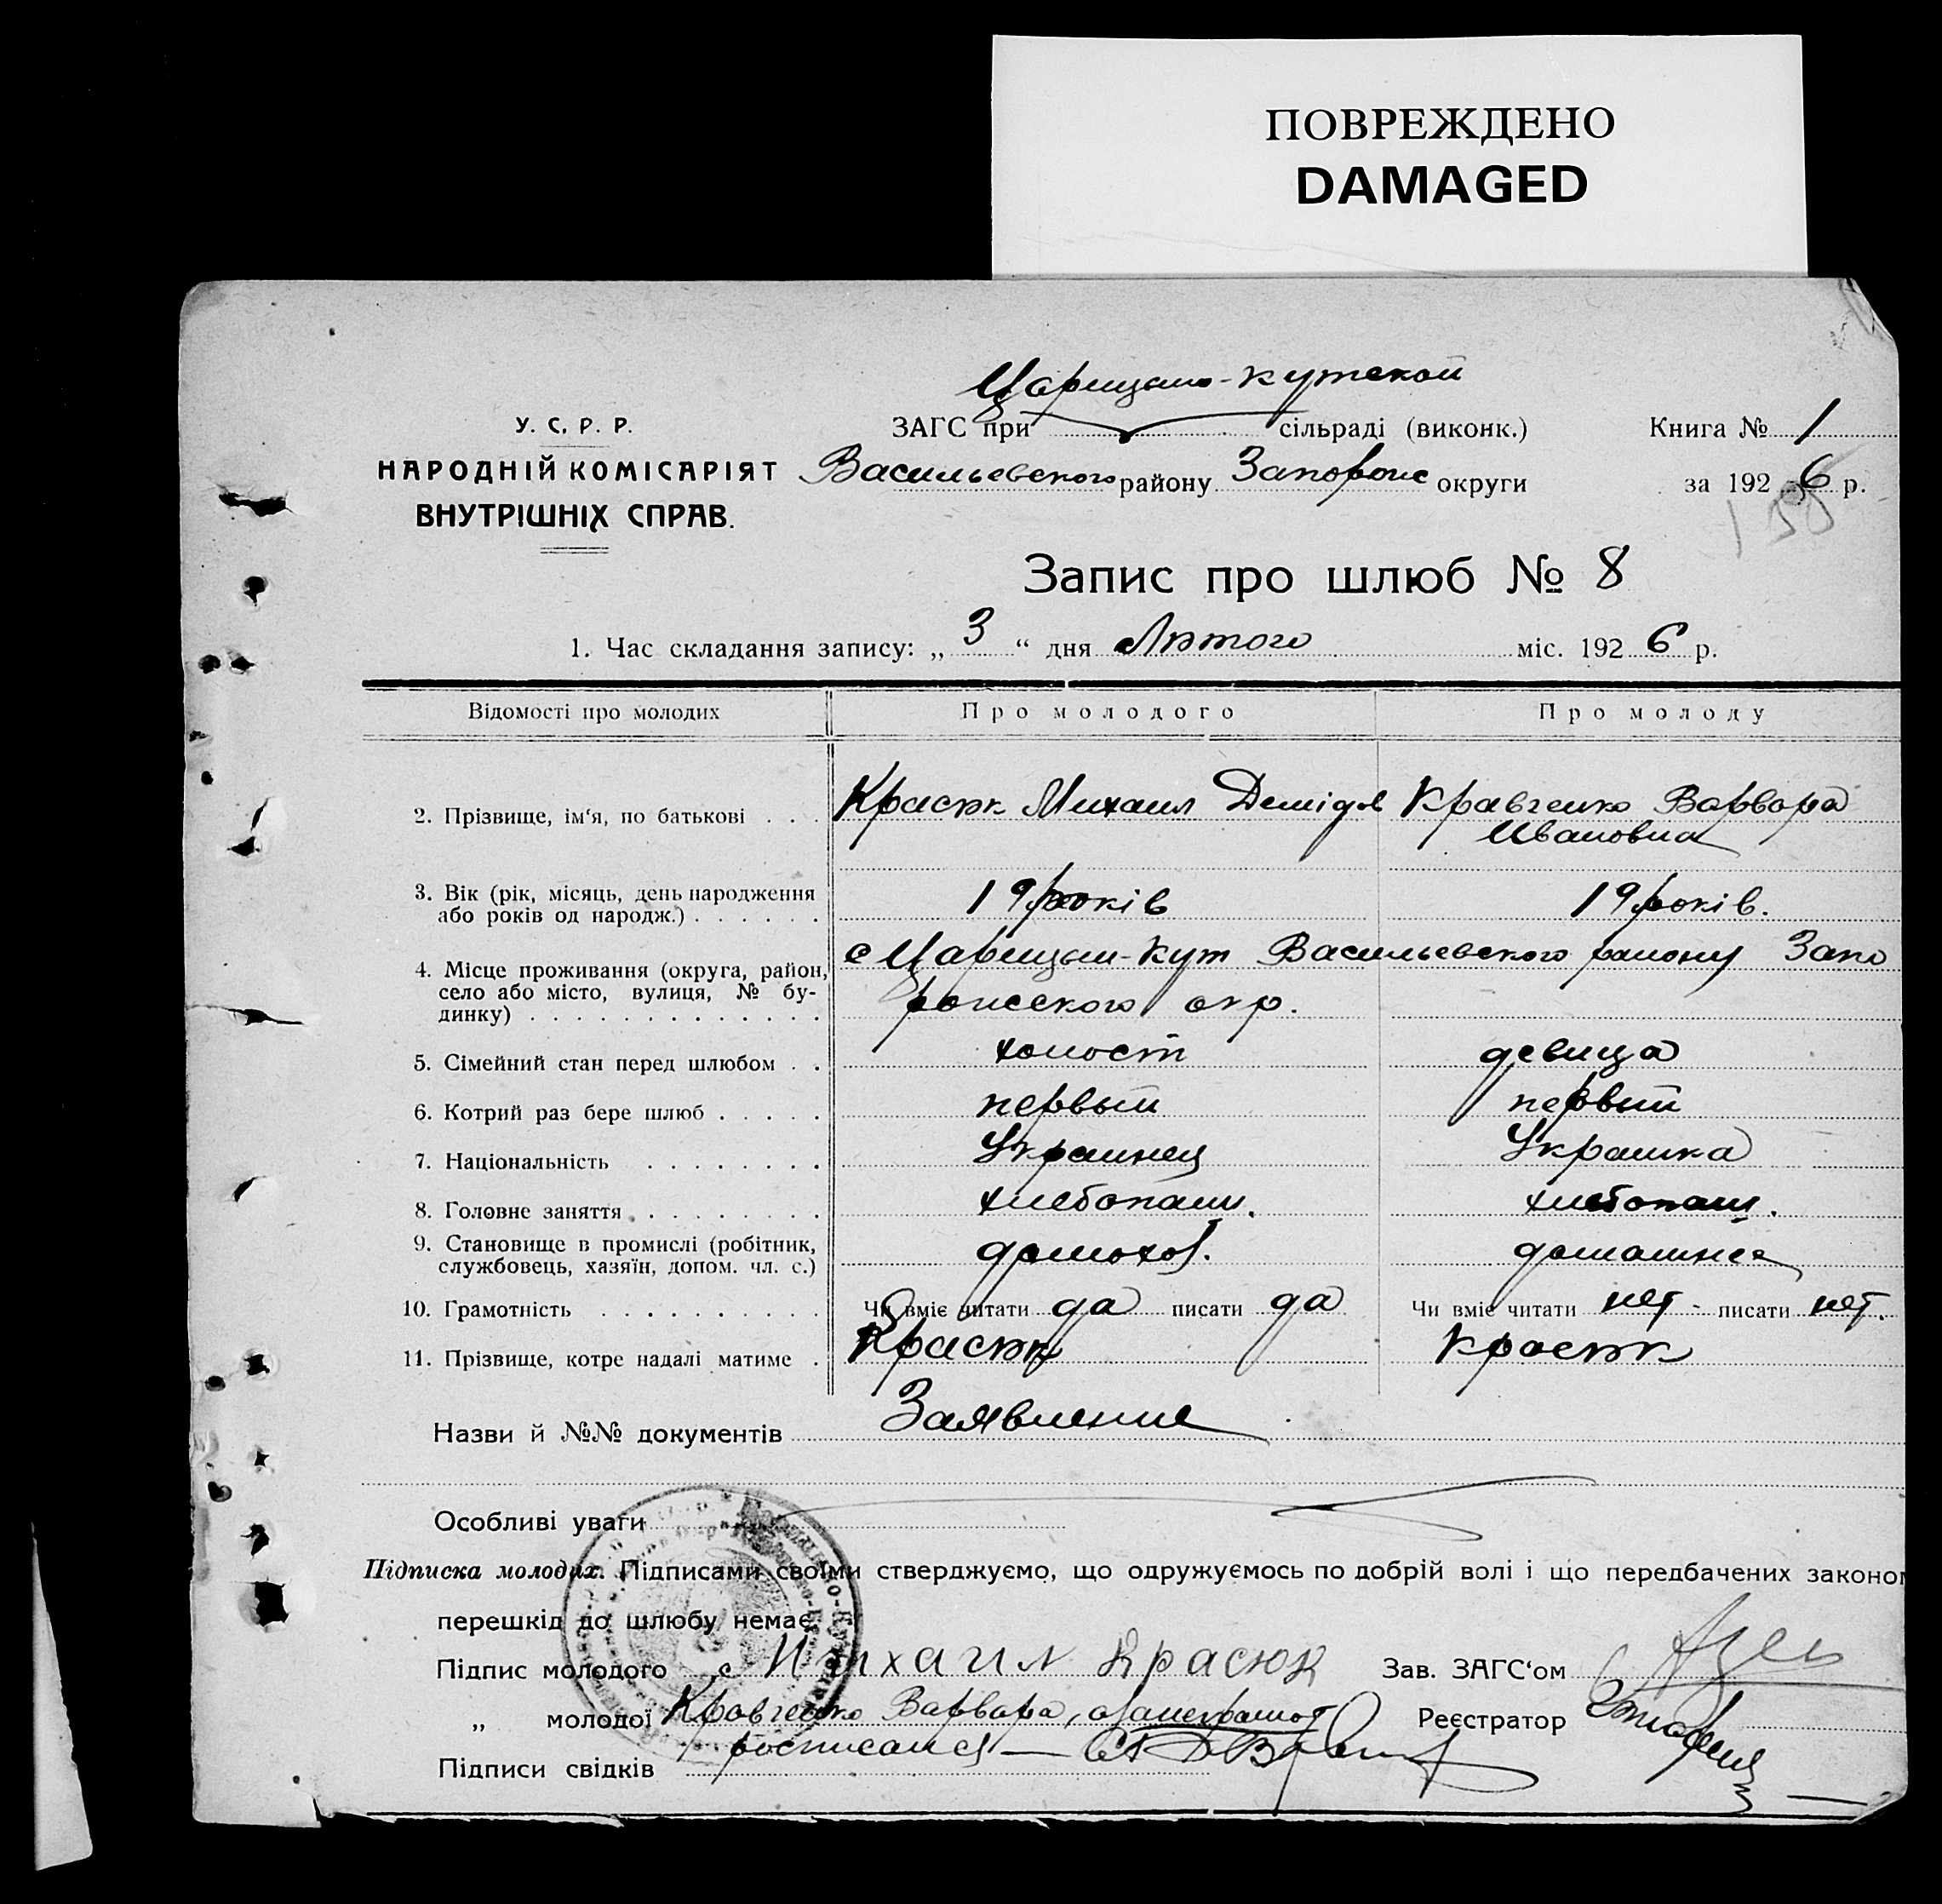 ПОВРЕЖДЕНО
DAMAGED
Царицино-Кутской
У. С. Р. Р.
ЗАГС при сільраді (виконк.)
Книга № 1
НАРОДНІЙ КОМІСАРІЯТ
ВНУТРІШНІХ СПРАВ.
Васильевского району Запорож округи
за 192 6 р.
Запис про шлюб № 8
1. Час складання запису: „ 3 “ дня Лютого міс. 192 6 р.
Відомості про молодих
Про молодого
Про молоду
2. Прізвище, ім‘я, по батькові . . .
Красюк Михаил Демідов
Кравченко Варвара
Ивановна
3. Вік (рік, місяць, день народження
або років од народж.) . . . . . .
19 років
19 років.
4. Місце проживання (округа, район,
село або місто, вулиця, № бу-
динку) . . . . . . . . . . . . .
с Царицын-Кут Васильевского району Запо
рожского окр.
5. Сімейний стан перед шлюбом . .
холост
девица
6. Котрий раз бере шлюб . . . . .
первый
первый
7. Національність . . . . . . . .
Украинец
Украинка
8. Головне заняття . . . . . . . .
хлебопаш.
хлебопаш.
9. Становище в промислі (робітник,
службовець, хазяїн, допом. чл. с.)
домохоз.
домашнее
10. Грамотність . . . . . . . . . .
Чи вміє читати да писати да
Чи вміє читати нет - писати нет.
11. Прізвище, котре надалі матиме .
Красюк
Красюк
Назви й №№ документів Заявление
Особливі уваги
Підписка молодих. Підписами своїми стверджуємо, що одружуємось по добрій волі і що передбачених законо
перешкід до шлюбу немає.
Підпис молодого Михаил Красюк
Зав. ЗАГС‘ом
„ молодої Кравченко Варвара, а за неграмот
Реєстратор
росписался —
Підписи свідків